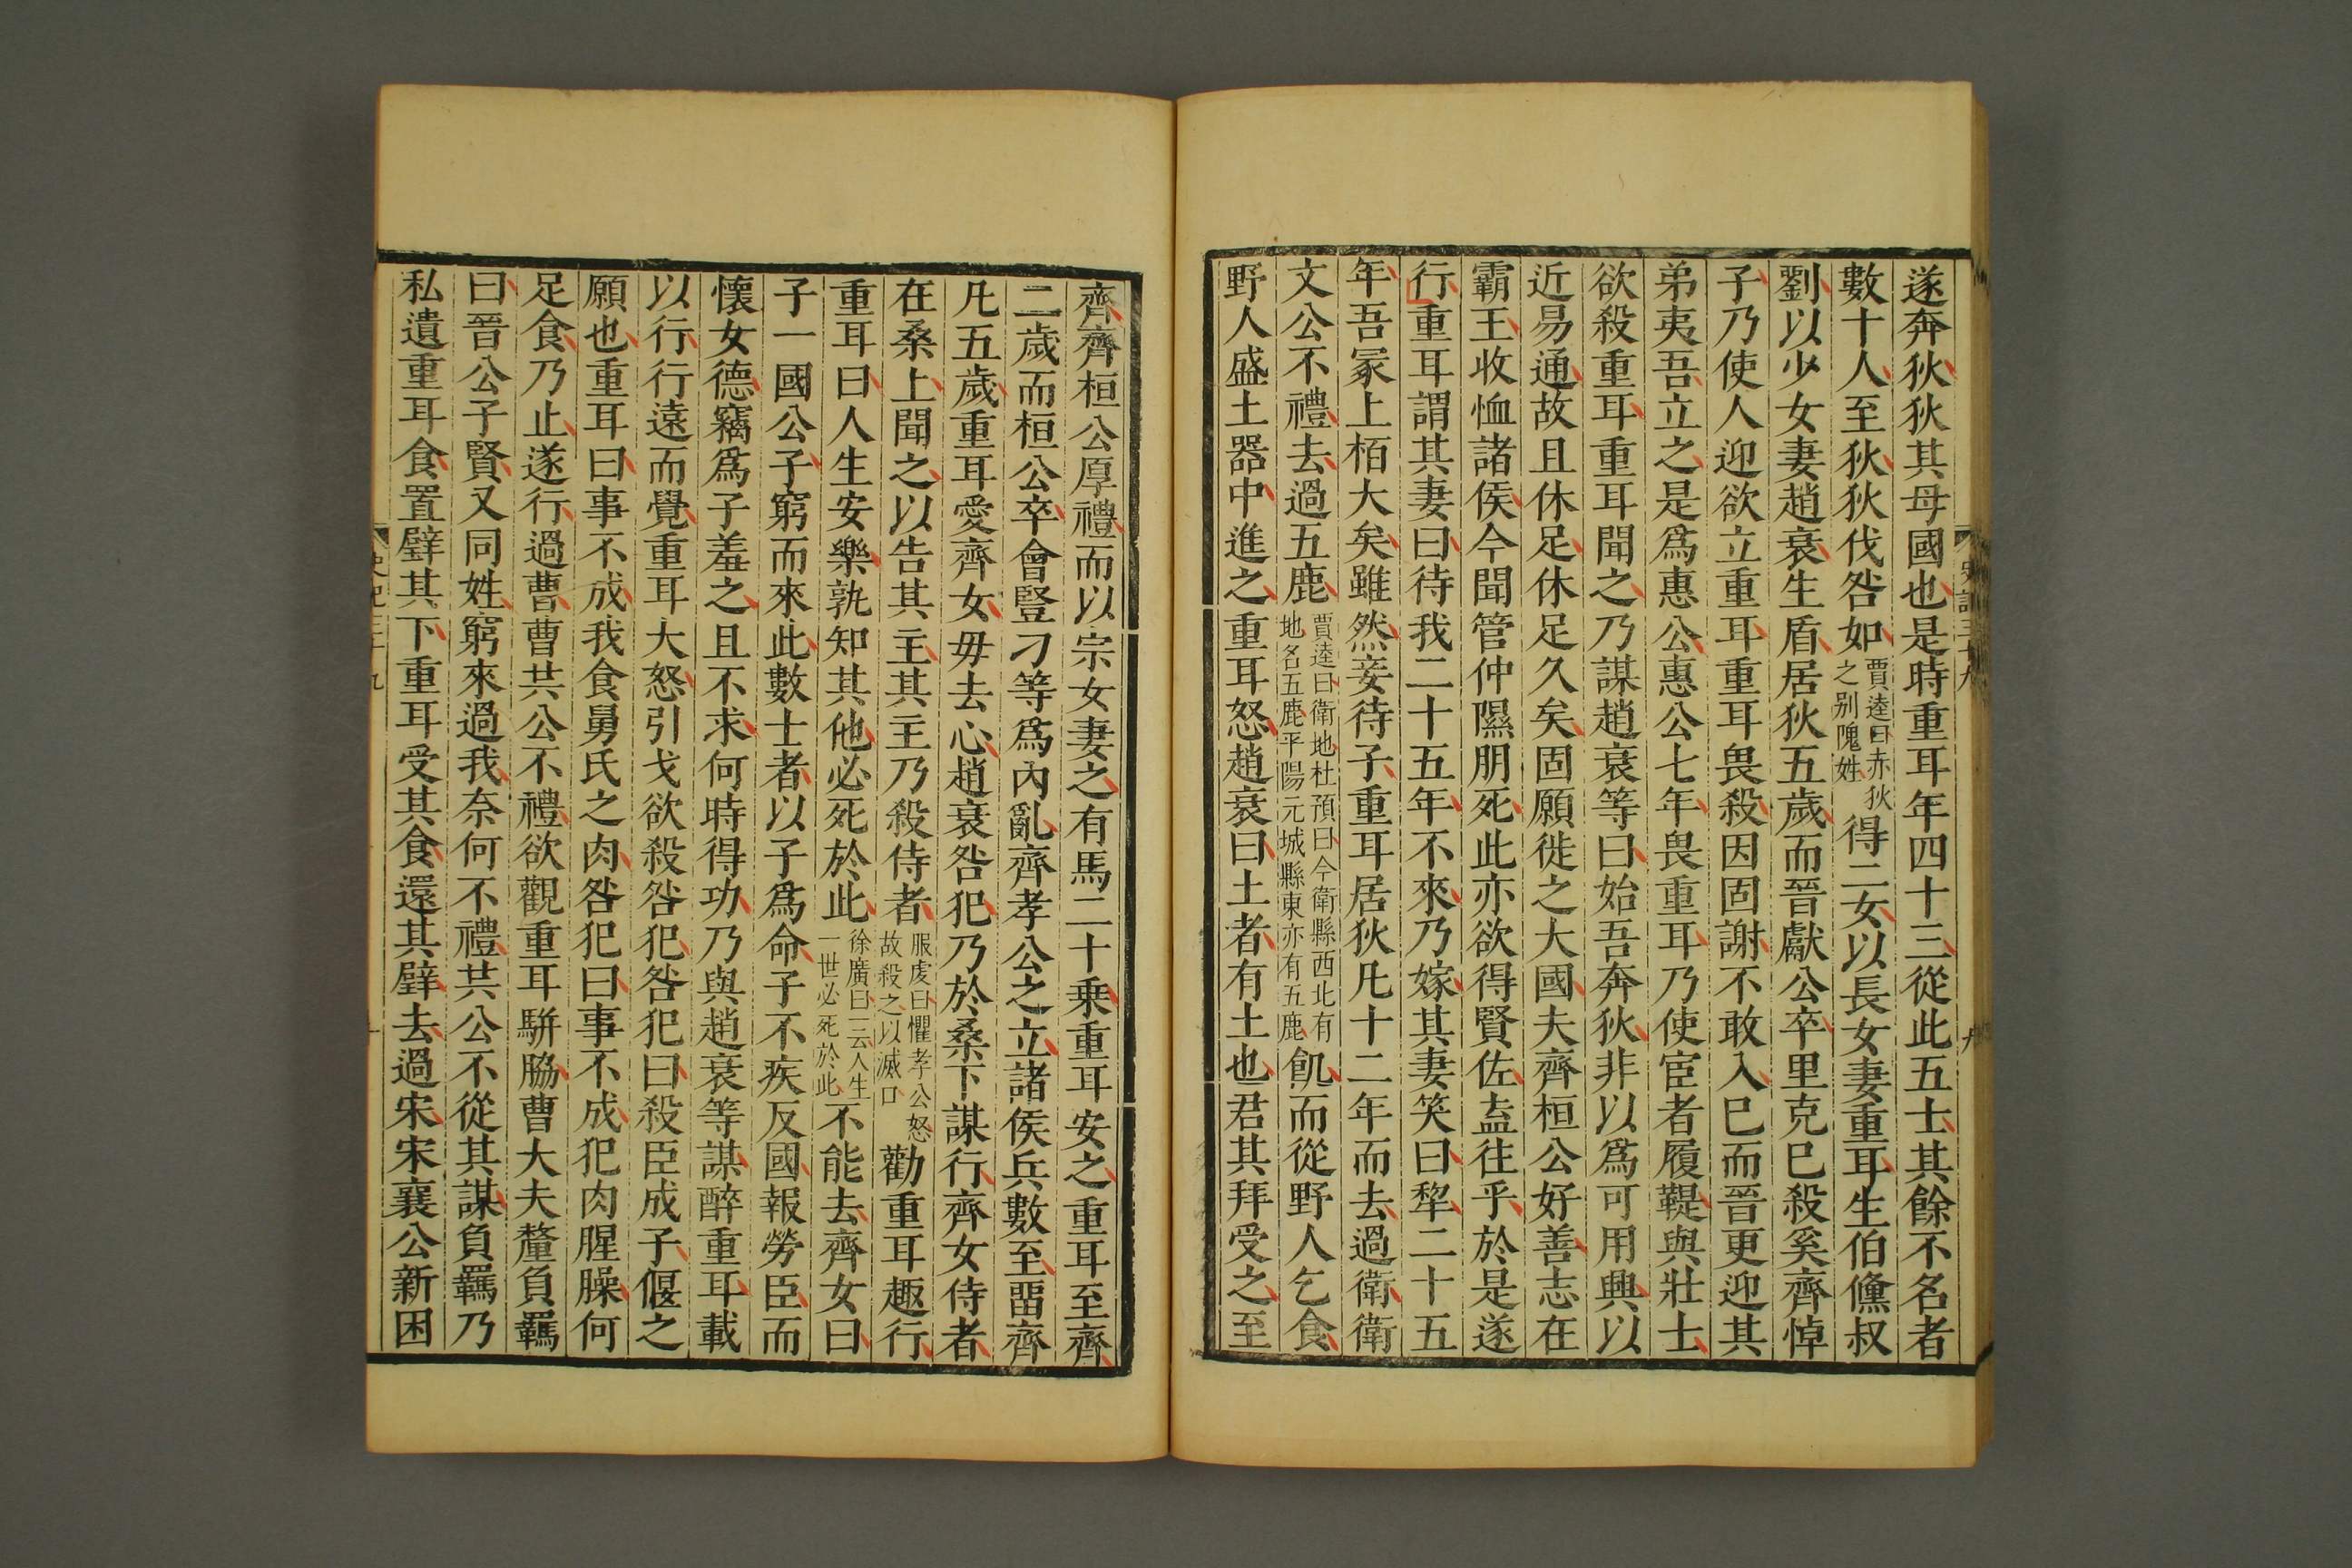 遂奔狄狄其母國也是時重耳年四十三從此五士其餘不名者
數十人至狄狄伐咎如賈逵曰赤狄之别隗姓得二女以長女妻重耳生伯鯈叔
劉以少女妻趙衰生盾居狄五歲而晉獻公卒里克已殺奚齊悼
子乃使人迎欲立重耳重耳畏殺因固謝不敢入已而晉更迎其
弟夷吾立之是爲惠公惠公七年畏重耳乃使宦者履鞮與壯士
欲殺重耳重耳聞之乃謀趙衰等曰始吾奔狄非以爲可用興以
近易通故且休足休足久矣固願徙之大國夫齊桓公好善志在
霸王收恤諸侯今聞管仲隰朋死此亦欲得賢佐盍往乎於是遂
行重耳謂其妻曰待我二十五年不來乃嫁其妻笑曰犂二十五
年吾冢上栢大矣雖然妾待子重耳居狄凡十二年而去過衛衛
文公不禮去過五鹿賈逵曰衛地杜預曰今衛縣西北有地名五鹿平陽元城縣東亦有五鹿飢而從野人乞食
野人盛土器中進之重耳怒趙衰曰土者有土也君其拜受之至
史記三十九
九
齊齊桓公厚禮而以宗女妻之有馬二十乗重耳安之重耳至齊
二歲而桓公卒會豎刁等爲內亂齊孝公之立諸侯兵數至畱齊
凡五歲重耳愛齊女毋去心趙衰咎犯乃於桑下謀行齊女侍者
在桑上聞之以告其主其主乃殺侍者服虔曰懼孝公怒故殺之以滅口勸重耳趣行
重耳曰人生安樂孰知其他必死於此徐廣曰一云人生一世必死於此不能去齊女曰
子一國公子窮而來此數士者以子爲命子不疾反國報勞臣而
懷女德竊爲子羞之且不求何時得功乃與趙衰等謀醉重耳載
以行行遠而覺重耳大怒引戈欲殺咎犯咎犯曰殺臣成子偃之
願也重耳曰事不成我食舅氏之肉咎犯曰事不成犯肉腥臊何
足食乃止遂行過曹曹共公不禮欲觀重耳駢脇曹大夫釐負羈
曰晉公子賢又同姓窮來過我奈何不禮共公不從其謀負羈乃
私遺重耳食置璧其下重耳受其食還其璧去過宋宋襄公新困
史記三十九